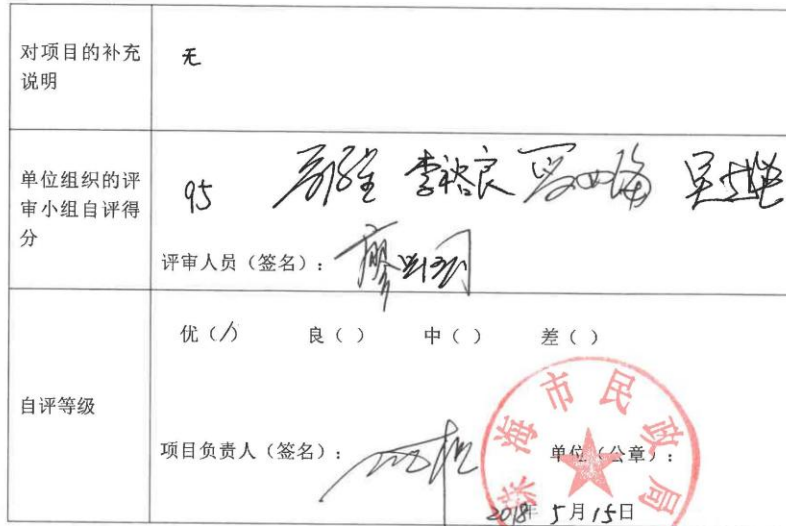 对项目的补充
说明
无
单位组织的评
审小组自评得
分
95 李裕良
评审人员（签名）：
自评等级
优（√） 良（ ） 中（ ） 差（ ）
项目负责人（签名）： 单位（公章）：
珠海市民政局
2018年 5月15日